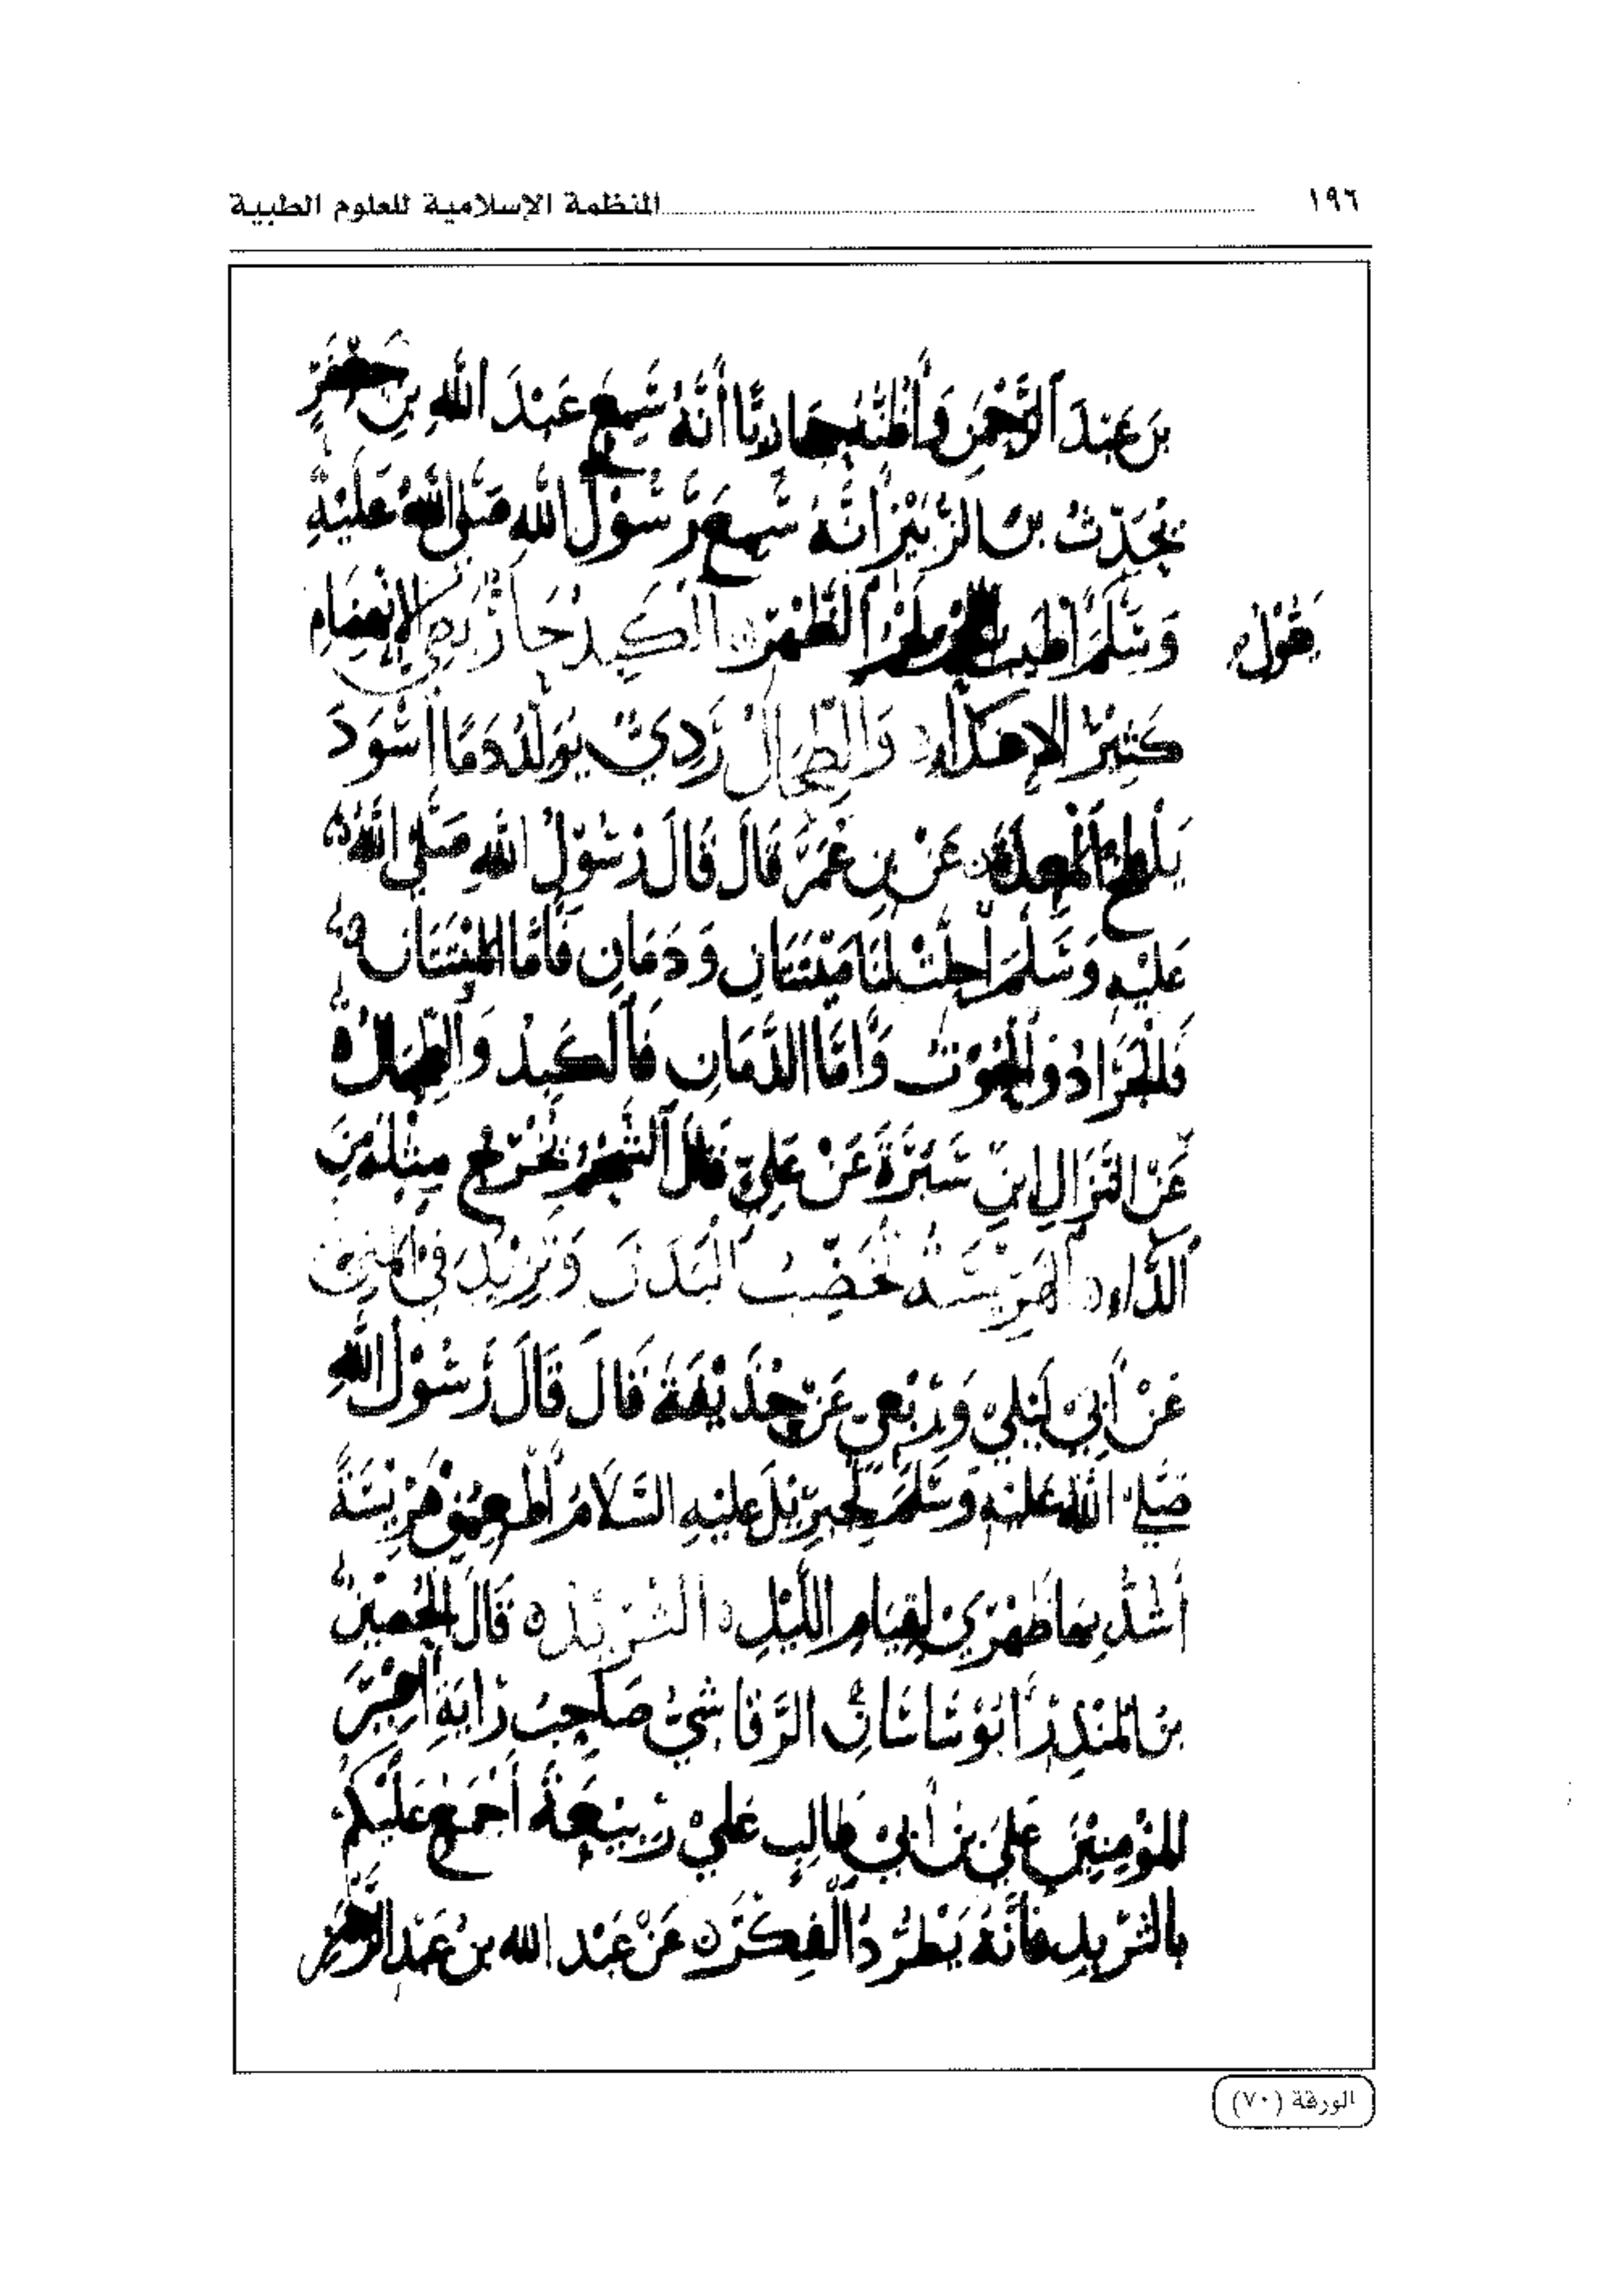 ١٩٦ المنظمة الإسلامية للعلوم الطبية
بن عبد الرحمن وأظنه حجازيا أنه سمع عبد الله بن جعفر
يحدث بن الزبير أنه سمع رسول الله صلى الله عليه
يقول
وسلم أطيب اللحم لحم الظهر الكبد حار بطي الانهضام
كثير الإغذاء والطحال ردي يولد دما أسود
يلطخ المعدة عن بن عمر قال قال رسول الله صلى الله
عليه وسلم أحلت لنا ميتتان ودمان فأما الميتتان
فالجراد والحوت وأما الدمان فالكبد والطحال
عن النزال ابن سبرة عن علي قال الشحم يخرج مثله من
الداء الهريسة تخصب البدن وتزيد في المني
عن أبي ليلى وربعي عن حذيفة قال قال رسول الله
صلى الله عليه وسلم لجبريل عليه السلام أطعمني هريسة
أشد بها ظهري لقيام الليل الثريد قال الحصين
بن المنذر أبو ساسان الرقاشي صاحب راية أمير
المؤمنين علي بن أبي طالب علي ربيعة أجمع عليكم
بالثريد فأنه يطرد الفكر عن عبد الله بن عبد الرحمن
الورقة (٧٠)